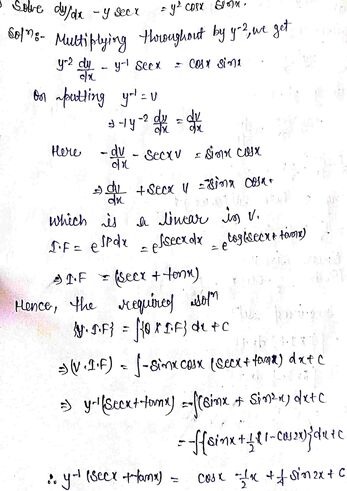 Solve dy/dx - y secx = y² cosx sinx.
Solⁿ:- Multiplying throughout by y-2, we get
y-2 dy/dx - y-1 secx = cosx sinx
On putting y-1 = v
⇒ -1y-2 dy/dx = dv/dx
Here -dv/dx - secx v = sinx cosx
⇒ dv/dx + secx v = -sinx cosx.
which is a linear in v.
I.F = e∫Pdx = e∫secxdx = elog(secx+tanx)
⇒ I.F = (secx + tanx)
Hence, the required solⁿ
{V.I.F} = ∫{Q X I.F} dx + C
⇒ (V.I.F) = ∫-sinx cosx (secx + tanx) dx + C
⇒ y-1(secx+tanx) = -∫(sinx + sin²x) dx + C
= -∫{sinx + 1/2(1-cos2x)} dx + C
∴ y-1 (secx + tanx) = cosx - 1/2x + 1/4 sin2x + C